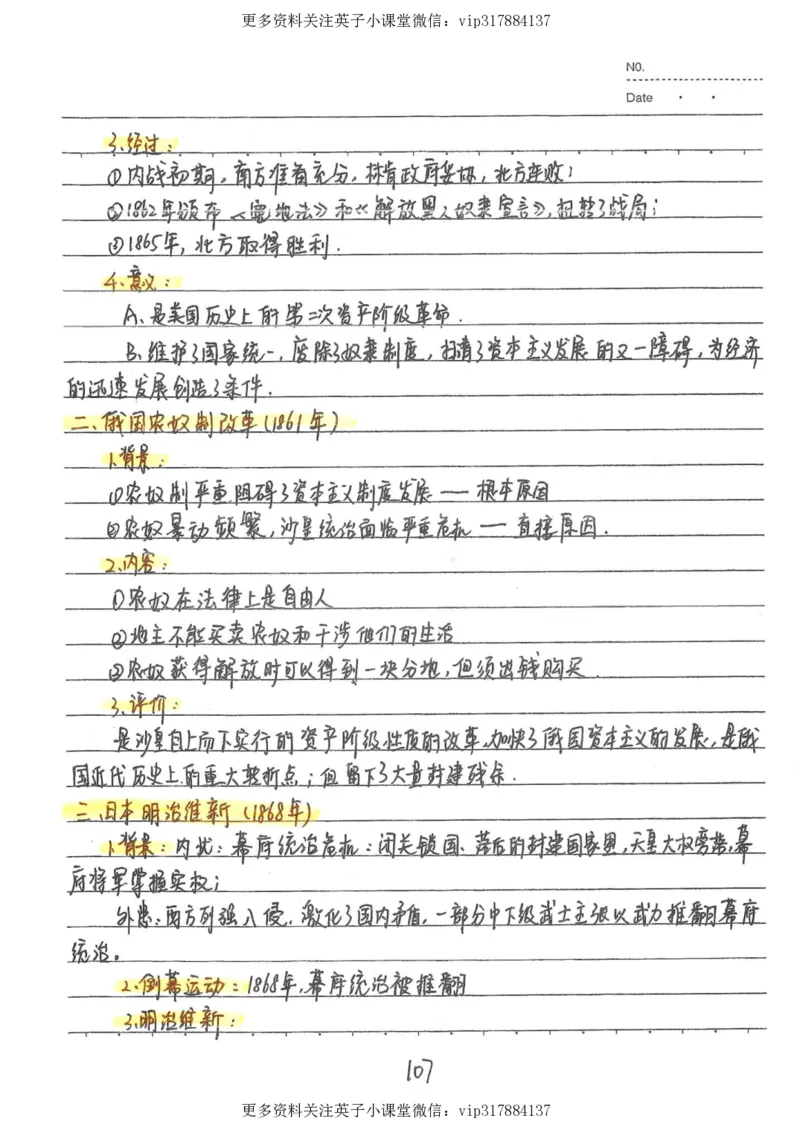 更多资料关注英子小课堂微信：vip317884137
NO.
Date
3、经过：
①内战初期，南方准备充分，林肯政府妥协，北方连败；
②1862年颁布《宅地法》和《解放黑人奴隶宣言》，扭转了战局；
③1865年，北方取得胜利．
4、意义：
A、是美国历史上的第二次资产阶级革命．
B、维护了国家统一，废除了奴隶制度，扫清了资本主义发展的又一障碍，为经济
的迅速发展创造了条件．
二、俄国农奴制改革（1861年）
1、背景：
①农奴制严重阻碍了资本主义制度发展——根本原因
②农奴暴动频繁，沙皇统治面临严重危机——直接原因．
2、内容：
①农奴在法律上是自由人
②地主不能买卖农奴和干涉他们的生活
③农奴获得解放时可以得到一块分地，但须出钱购买．
3、评价：
是沙皇自上而下实行的资产阶级性质的改革，加快了俄国资本主义的发展，是俄
国近代历史上的重大转折点；但留下了大量封建残余．
三、日本明治维新（1868年）
1、背景：内扰：幕府统治危机：闭关锁国、落后的封建国家，天皇大权旁落，幕
府将军掌握实权；
外患：西方列强入侵．激化了国内矛盾，一部分中下级武士主张以武力推翻幕府
统治。
2、倒幕运动：1868年，幕府统治被推翻
3、明治维新：
107
更多资料关注英子小课堂微信：vip317884137